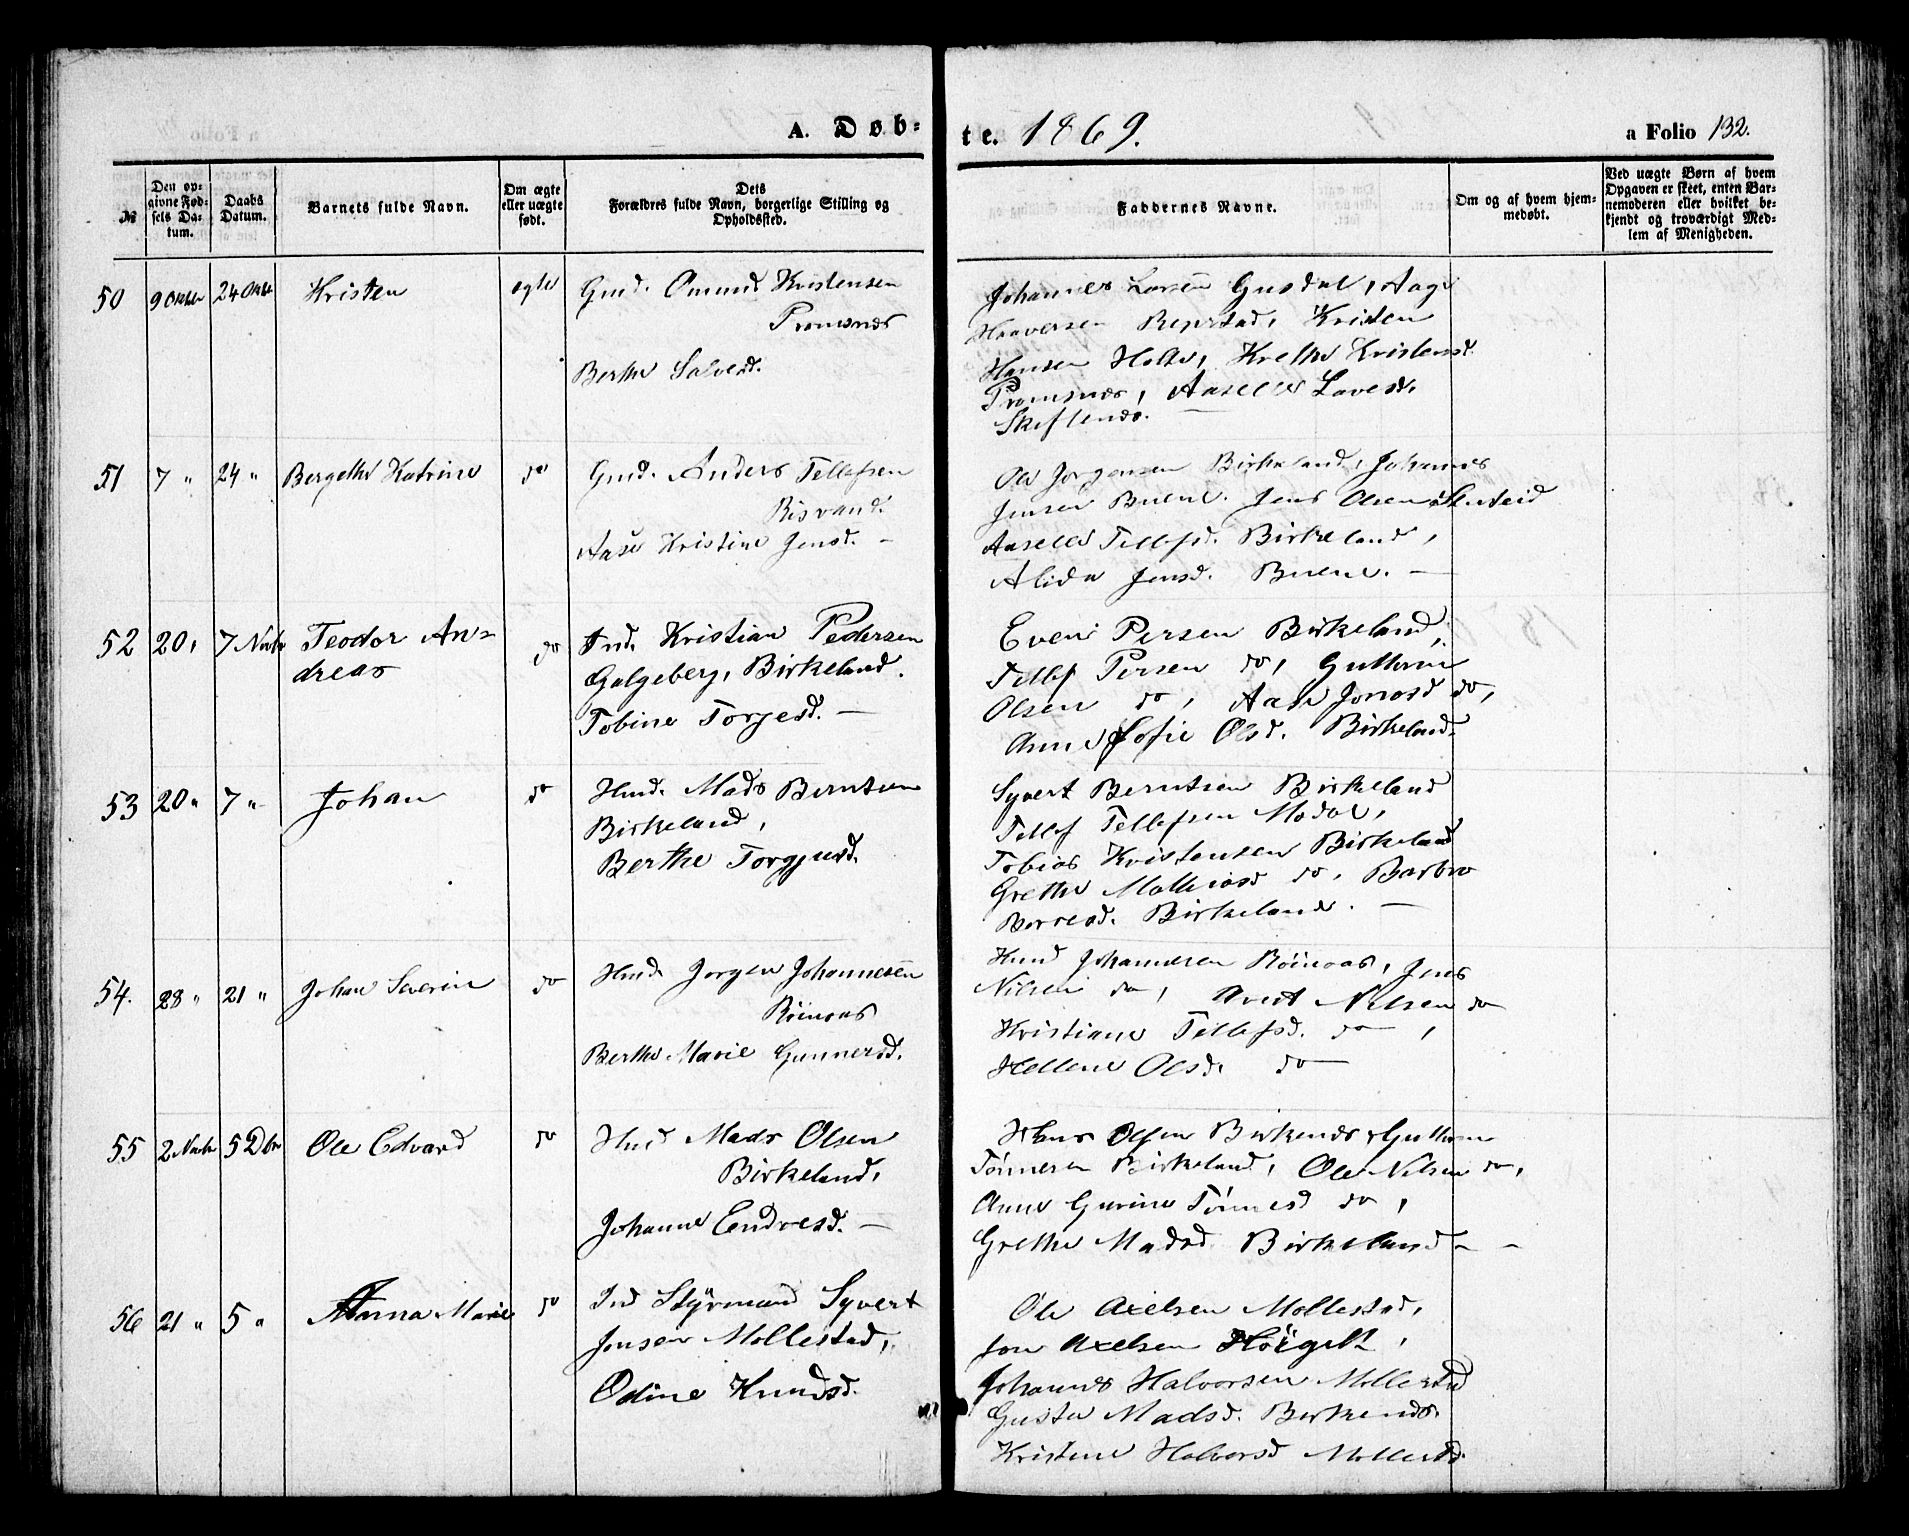 A. Døb-
te. 1869.
a Folio 132.
№
Den op-
givne Fød-
sels Da-
tum.
Daabs
Datum.
Barnets fulde Navn.
Om ægte
eller uægte
født.
Dets
Forældres fulde Navn, borgerlige Stilling og
Opholdssted.
Faddernes Navne.
Om og af hvem hjem-
medøbt.
Ved uægte Børn af hvem
Opgaven er skeet, enten Bar-
nemoderen eller hvilket be-
kjendt og troværdigt Med-
lem af Menigheden.
50 9 Oktbr 24 Oktbr Kristen ægte Gmd. Omund Kristensen
Promsnes
Berthe Salvesd.
Johannes Larsen Gusdal, Aage
Haaversen Repstad, Kristen
Hansen Holte, Krethe Kristensd.
Promsnes, Aaselle Lavesd.
51 7 " 24 " Bergethe Katrine do Gmd. Anders Tellefsen
Risvand.
Aase Kristine Jensd. –
Ole Jorgensen Birkeland, Johannes
Jensen Buene. Jens Olsen
Aaselle Tellefsd. Birkeland,
Alida Jensd. Buene. –
52 20, 7 Novbr Teodor An-
dreas
do Ind. Kristian Pedersen
Galgeberg, Birkeland.
Tobine Torjesd. –
Even Persen Birkeland,
Tellef Persen do, Guttorm
Olsen do, Aase Jonasd do,
Anne Sofie Olsd. Birkeland.
53 20 " 7 " Johan do Hmd. Mads Berntsen
Birkeland,
Berthe Torgjusd.
Syvert Berntsen Birkeland
Tellef Tellefsen Modal,
Tobias Kristensen Birkeland
Grethe Mathiasd do, Barbro
Birkeland. –
54. 28 " 21 " Johan Severin do Hmd. Jorgen Johannesen
Röinaas
Berthe Marie Gunnersd.
Knud Johannesen Röinaas, Jens
Nilsen do, Nilsen do
Kristiane Tellefsd. do,
Hellene Olsd. do
55 2 Novbr 5 Dbr Ole Edvard do Hmd Mads Olsen
Birkeland,
Johanne Endresd. –
Hans Olsen Birkenes, Guttorm
Tönnesen Birkeland, Ole Nilsen do,
Anne Gurine Tönnesd do,
Grethe Madsd. Birkeland – –
56 21 " 5 " Anna Marie do Ind Styrmand Syvert
Jensen Mollestad,
Odine Knudsd.
Ole Axelsen Mollestad,
Jon Axelsen
Johannes Halvorsen Mollestad
Gusta Madsd. Berkenes.
Kristene Halvorsd Mollestd.